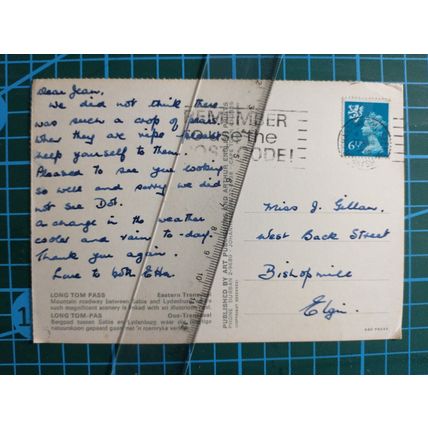 Dear Jean,
We did not think there
was such a crop of
When they are ripe
help yourself to them.
Pleased to see you looking
so well and sorry we did
not see Dot.
a change in the weather
cooler and rain to-day.
Thank you again.
Love to both Etta.
LONG TOM PASS Eastern
Mountain roadway between Sabie and Lydenburg
LONG TOM-PAS Oos-Transvaal
Bergpad tussen Sabie en Lydenburg waar die
PUBLISHED BY ART PUBLISHERS
REMEMBER
use the
POSTCODE!
6½P
Miss J. Gillan.
West Back Street
Bishopmill
Elgin.